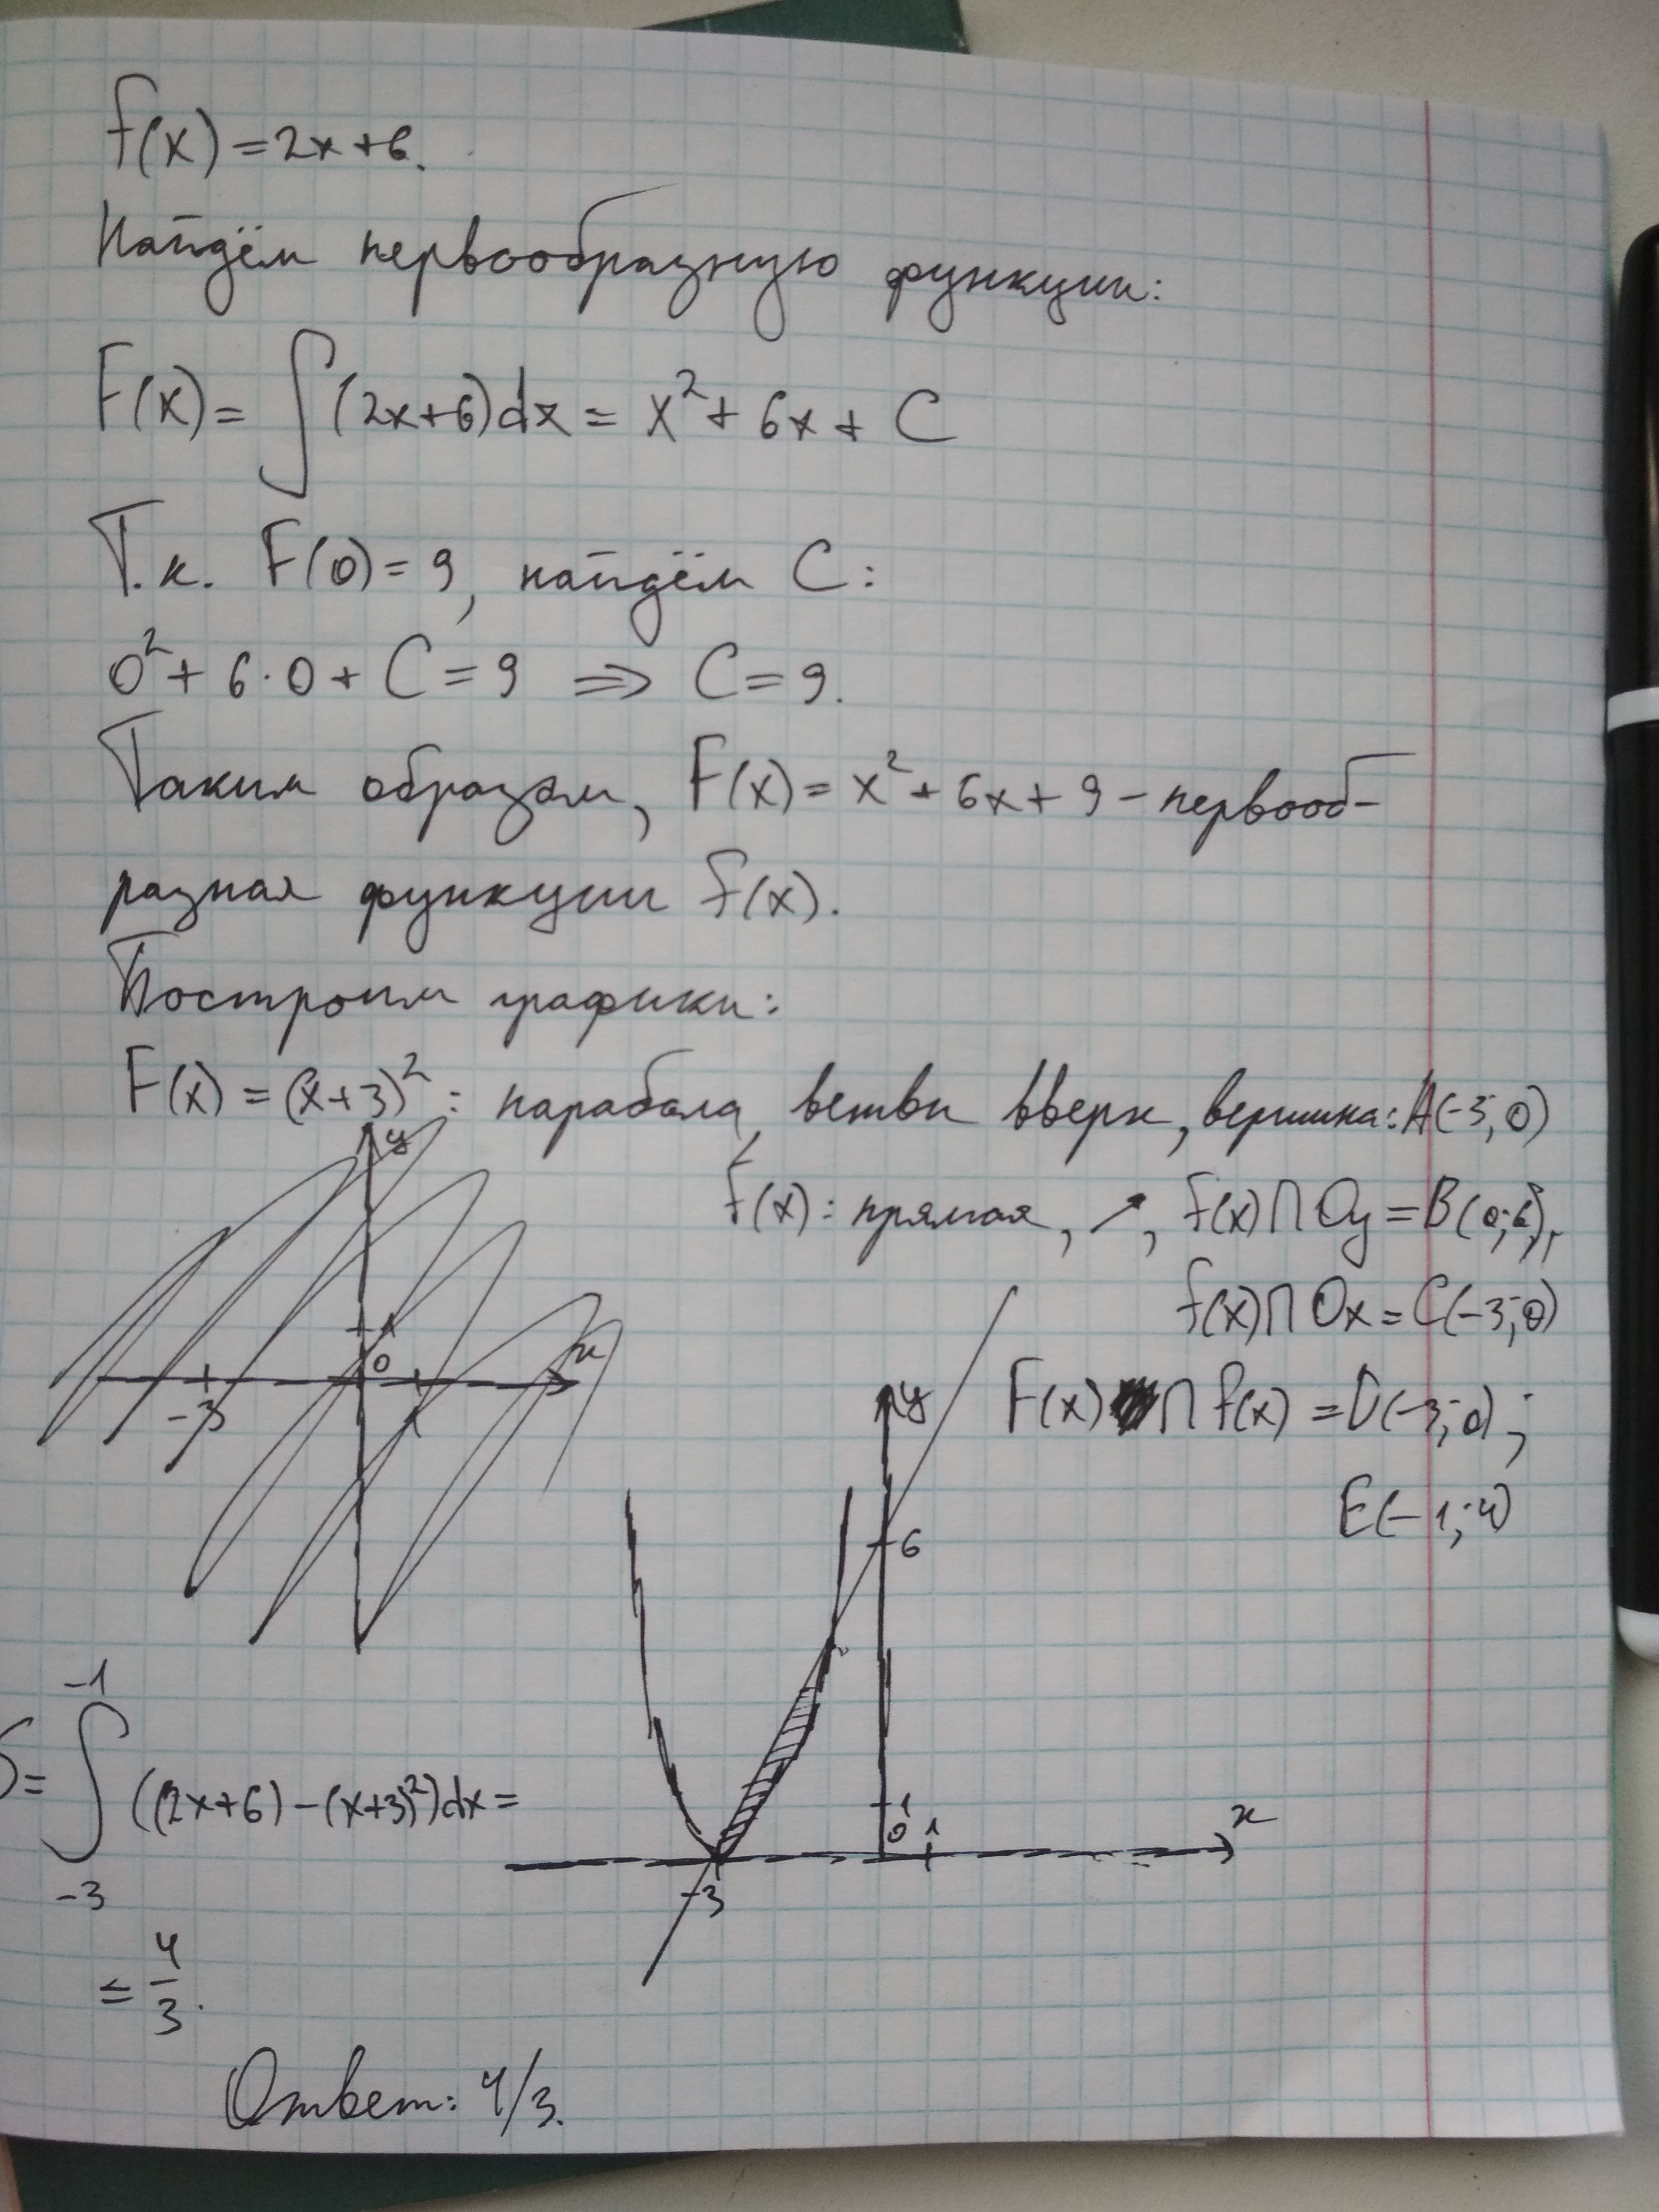 f(x) = 2x+6.
Найдём первообразную функции:
F(x) = ∫(2x+6)dx = x² + 6x + C
Т.к. F(0) = 9, найдём C:
0² + 6·0 + C = 9 ⇒ C = 9.
Таким образом, F(x) = x² + 6x + 9 – первооб-
разная функции f(x).
Построим графики:
F(x) = (x+3)² : парабола, ветви вверх, вершина: A(-3; 0)
f(x): прямая, ↗, f(x) ∩ Oy = B(0; 6),
f(x) ∩ Ox = C(-3; 0)
F(x) ∩ f(x) = D(-3; 0);
E(-1; 4)
y
1
0
x
-3
1
y
6
1
0
1
x
-3
-1
S = ∫((2x+6) – (x+3)²)dx =
-3
= 4/3.
Ответ: 4/3.